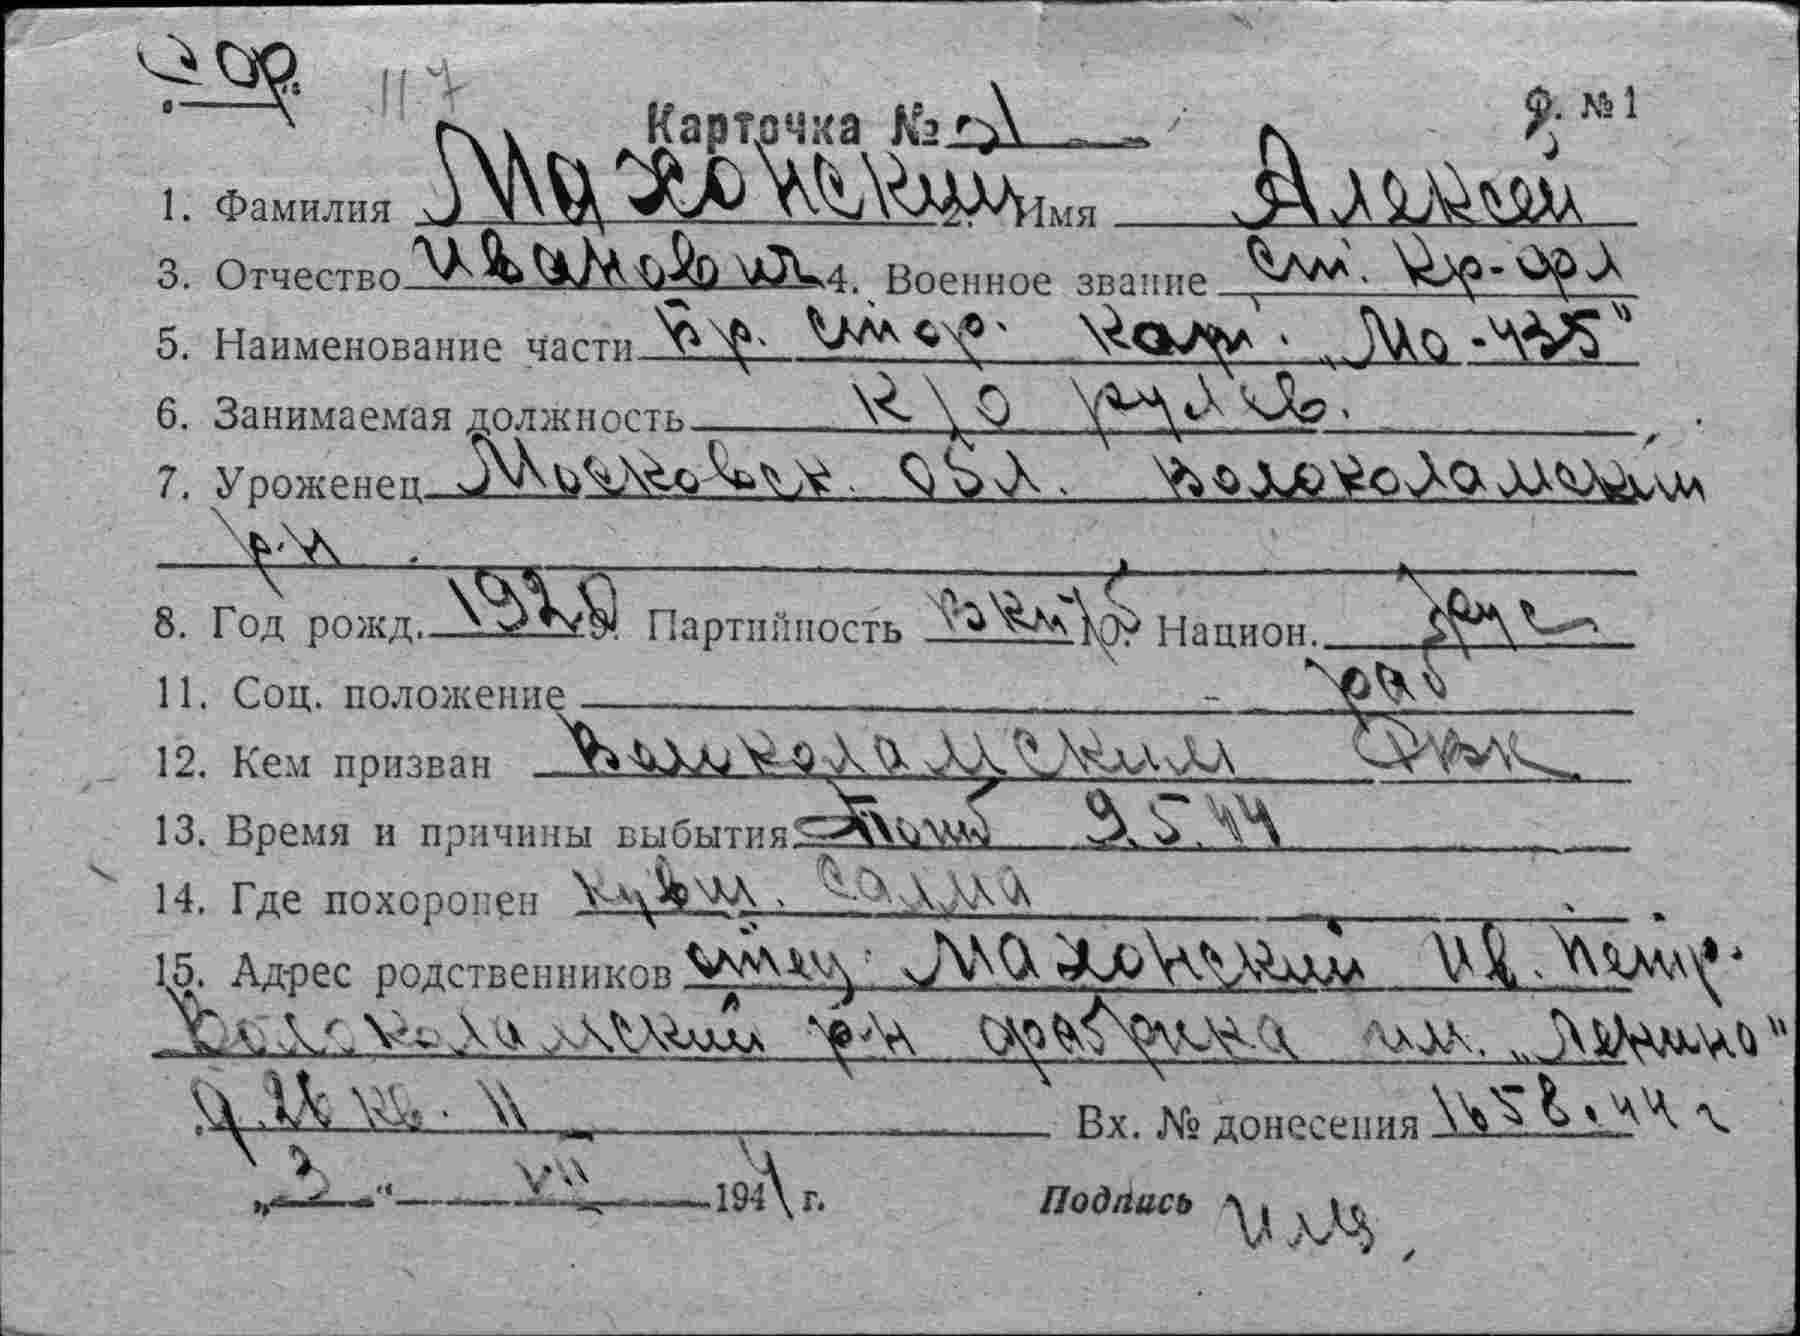 117
Карточка № 21 Ф. № 1
1. Фамилия Махонский 2. Имя Алексей
3. Отчество Иванович 4. Военное звание Ст. кр-фл
5. Наименование части Бр. стор. кат. „Мо-435"
6. Занимаемая должность к/о рулев.
7. Уроженец Московск. обл. Волоколамский
р-н.
8. Год рожд. 1920 9. Партийность ВКП/б 10. Национ. рус.
11. Соц. положение раб
12. Кем призван Волоколамским РВК
13. Время и причины выбытия Погиб 9.5.44
14. Где похоронен Кувш. Салма
15. Адрес родственников отец Махонский Ив. Петр.
Волоколамский р-н фабрика им. „Ленина"
д. 26 кв. 11 Вх. № донесения 1658.44 г
„3" VII 1944 г. Подпись